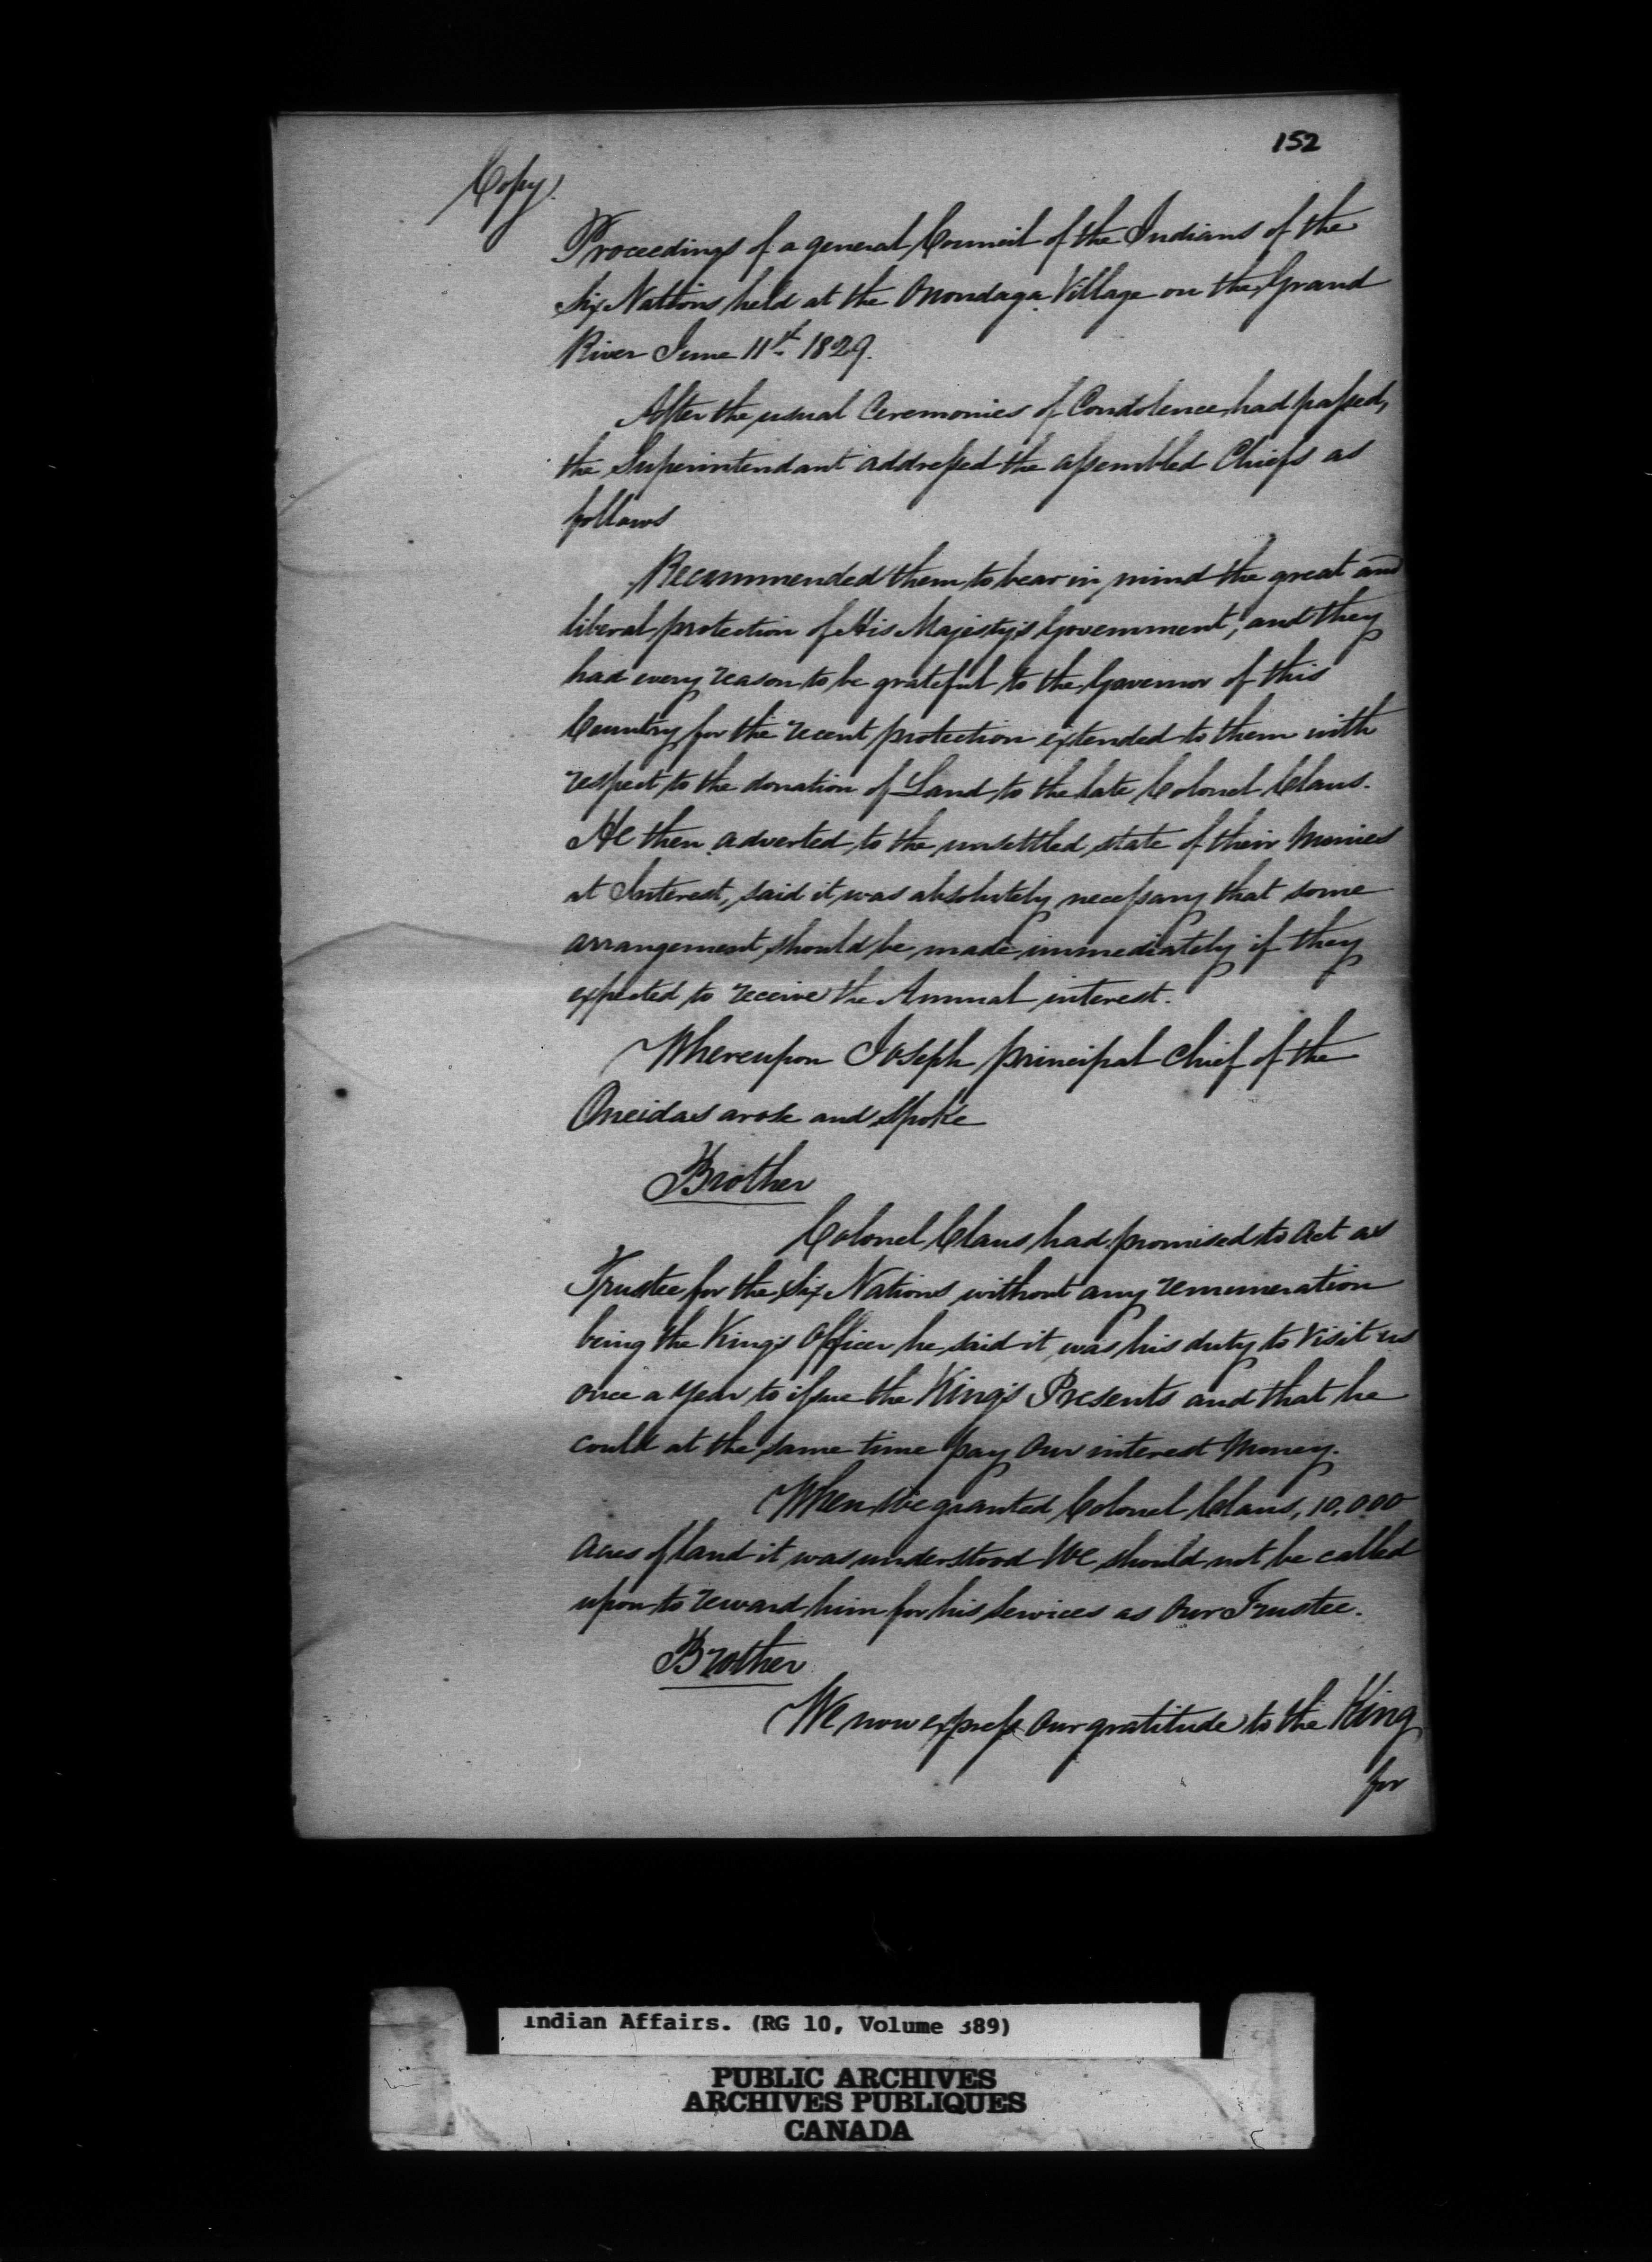 152
Copy.
Proceedings of a general Council of the Indians of the
Six Nations held at the Onondaga Village on the Grand
River June 11th 1829.
After the usual Ceremonies of Condolence had passed,
the Superintendant addressed the assembled Chiefs as
follows
Recommended them to bear in mind the great and
liberal protection of His Majesty's Government, and they
had every reason to be grateful to the Governor of this
Country for the recent protection extended to them with
respect to the donation of Land to the late Colonel Claus.
He then adverted to the unsettled state of their Monies
at Interest, said it was absolutely necessary that some
arrangement should be made immediately if they
expected to receive the Annual interest.
Whereupon Joseph principal Chief of the
Oneidas arose and spoke
Brother
Colonel Claus had promised to Act as
Trustee for the Six Nations without any remuneration
being the King's Officer he said it was his duty to Visit us
once a year to issue the King's Presents and that he
could at the same time pay Our interest Money.
When We granted Colonel Claus, 10,000
Acres of land it was understood We should not be called
upon to reward him for his services as Our Trustee.
Brother
We now express Our gratitude to the King
for
Indian Affairs. (RG 10, Volume 389)
PUBLIC ARCHIVES
ARCHIVES PUBLIQUES
CANADA